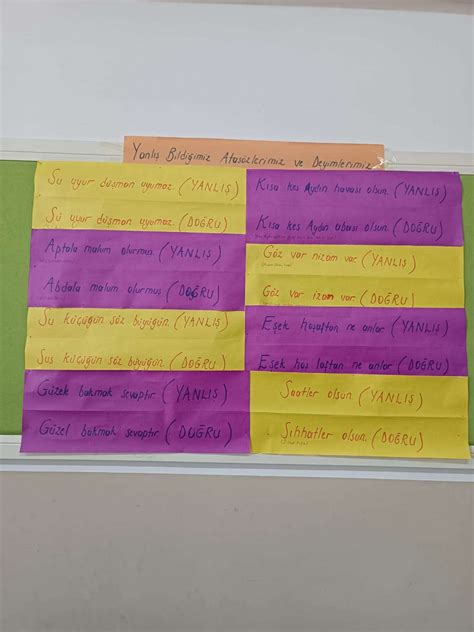 Yanlış Bildiğimiz Atasözlerimiz ve Deyimlerimiz
Su uyur düşman uyumaz. (YANLIŞ)
Sü uyur düşman uyumaz. (DOĞRU)
Aptala malum olurmuş. (YANLIŞ)
Abdala malum olurmuş. (DOĞRU)
Su küçüğün söz büyüğün. (YANLIŞ)
Sus küçüğün söz büyüğün. (DOĞRU)
Güzele bakmak sevaptır. (YANLIŞ)
Güzel bakmak sevaptır. (DOĞRU)
Kısa kes Aydın havası olsun. (YANLIŞ)
Kısa kes Aydın abası olsun. (DOĞRU)
Göz var nizam var. (YANLIŞ)
Göz var izam var. (DOĞRU)
Eşek hoşaftan ne anlar (YANLIŞ)
Eşek hoş laftan ne anlar (DOĞRU)
Saatler olsun. (YANLIŞ)
Sıhhatler olsun. (DOĞRU)